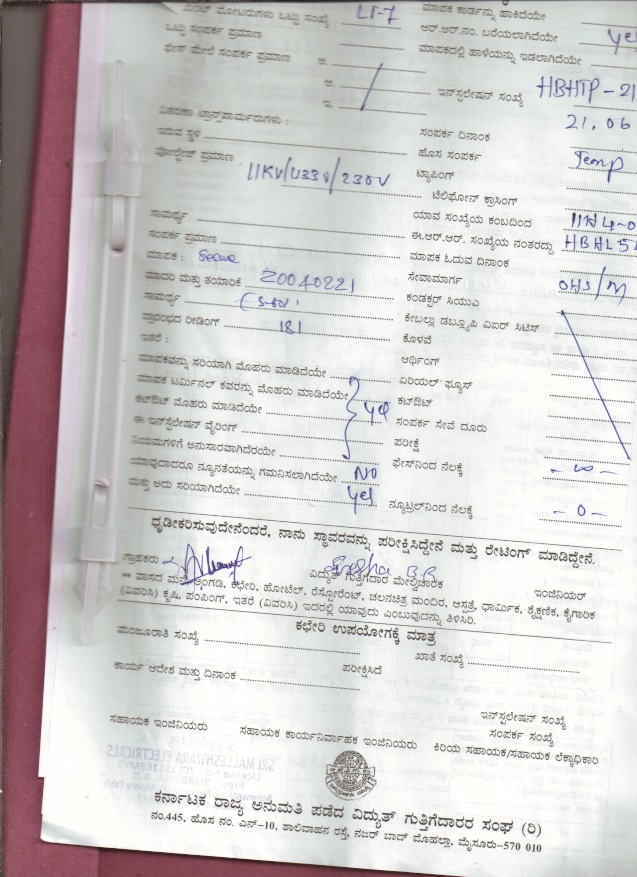 ಮಾಪಕ ಕಾರ್ಡನ್ನು ಹಾಕಿದೆಯೇ
ಮೋಟರುಗಳು ಒಟ್ಟು ಸಂಖ್ಯೆ LT-7 ಆರ್.ಆರ್.ನಂ. ಬರೆಯಲಾಗಿದೆಯೇ yes
ಒಟ್ಟು ಸಂಪರ್ಕ ಪ್ರಮಾಣ ಮಾಪಕದಲ್ಲಿ ಹಾಳೆಯನ್ನು ಇಡಲಾಗಿದೆಯೇ
ಫೇಸ್ ಮೇಲೆ ಸಂಪರ್ಕ ಪ್ರಮಾಣ ಅ.
ಆ. ಇನ್‌ಸ್ಟಲೇಷನ್ ಸಂಖ್ಯೆ HBHTP-21
ಇ.
ವಿತರಣಾ ಟ್ರಾನ್ಸ್‌ಪಾರ್ಮರುಗಳು : ಸಂಪರ್ಕ ದಿನಾಂಕ 21.06
ಇರುವ ಸ್ಥಳ ಹೊಸ ಸಂಪರ್ಕ Temp
ವೋಲ್ಟೇಜ್ ಪ್ರಮಾಣ 11KV/433V/230V ಟ್ಯಾಪಿಂಗ್
ಟೆಲಿಫೋನ್ ಕ್ರಾಸಿಂಗ್
ಸಾಮರ್ಥ್ಯ ಯಾವ ಸಂಖ್ಯೆಯ ಕಂಬದಿಂದ
ಸಂಪರ್ಕ ಪ್ರಮಾಣ ಈ.ಆರ್.ಆರ್. ಸಂಖ್ಯೆಯ ನಂತರದ್ದು HBHL51
ಮಾಪಕ : Secure ಮಾಪಕ ಓದುವ ದಿನಾಂಕ
ಮಾದರಿ ಮತ್ತು ತಯಾರಿಕೆ Z0040221 ಸೇವಾಮಾರ್ಗ OHS/M
ಸಾಮರ್ಥ್ಯ ಕಂಡಕ್ಟರ್ ಸಿಯುಎ
ಪ್ರಾರಂಭದ ರೀಡಿಂಗ್ 181 ಕೇಬಲ್ಲು ಡಬ್ಲ್ಯೂಪಿ ವಿಐರ್ ಸಿಟಿಸ್
ಇತರೆ : ಕೊಳವೆ
ಆರ್ಥಿಂಗ್
ಮಾಪಕವನ್ನು ಸರಿಯಾಗಿ ಮೊಹರು ಮಾಡಿದೆಯೇ ಏರಿಯಲ್ ಫ್ಯೂಸ್
ಮಾಪಕ ಟರ್ಮಿನಲ್ ಕವರನ್ನು ಮೊಹರು ಮಾಡಿದೆಯೇ ಕಟ್‌ಔಟ್
ಕಟ್‌ಔಟ್ ಮೊಹರು ಮಾಡಿದೆಯೇ yes ಸಂಪರ್ಕ ಸೇವೆ ದೂರು
ಈ ಇನ್‌ಸ್ಟಲೇಷನ್ ವೈರಿಂಗ್ ಪರೀಕ್ಷೆ
ನಿಯಮಗಳಿಗೆ ಅನುಸಾರವಾಗಿದೆರಯೇ
ಯಾವುದಾದರೂ ನ್ಯೂನತೆಯನ್ನು ಗಮನಿಸಲಾಗಿದೆಯೇ NO ಫೇಸ್‌ನಿಂದ ನೆಲಕ್ಕೆ - ∞ -
ಮತ್ತು ಅದು ಸರಿಯಾಗಿದೆಯೇ yes ನ್ಯೂಟ್ರಲ್‌ನಿಂದ ನೆಲಕ್ಕೆ - 0 -
ಧೃಡೀಕರಿಸುವುದೇನೆಂದರೆ, ನಾನು ಸ್ಥಾವರವನ್ನು ಪರೀಕ್ಷಿಸಿದ್ದೇನೆ ಮತ್ತು ರೇಟಿಂಗ್ ಮಾಡಿದ್ದೇನೆ.
ಗ್ರಾಹಕರು ವಿದ್ಯುತ್ ಗುತ್ತಿಗೆದಾರ ಮೇಲ್ವಿಚಾರಕ ಇಂಜಿನಿಯರ್
** ವಾಸದ ಮನೆ, ಅಂಗಡಿ, ಕಛೇರಿ, ಹೋಟೆಲ್, ರೆಸ್ಟೋರೆಂಟ್, ಚಲನಚಿತ್ರ ಮಂದಿರ, ಆಸ್ಪತ್ರೆ, ಧಾರ್ಮಿಕ, ಶೈಕ್ಷಣಿಕ, ಕೈಗಾರಿಕ
(ವಿವರಿಸಿ) ಕೃಷಿ, ಪಂಪಿಂಗ್, ಇತರೆ (ವಿವರಿಸಿ) ಇದರಲ್ಲಿ ಯಾವುದು ಎಂಬುವುದನ್ನು ತಿಳಿಸಿರಿ.
ಕಛೇರಿ ಉಪಯೋಗಕ್ಕೆ ಮಾತ್ರ
ಮಂಜೂರಾತಿ ಸಂಖ್ಯೆ ಖಾತೆ ಸಂಖ್ಯೆ
ಕಾರ್ಯ ಆದೇಶ ಮತ್ತು ದಿನಾಂಕ ಪರೀಕ್ಷಿಸಿದೆ
ಇನ್‌ಸ್ಟಲೇಷನ್ ಸಂಖ್ಯೆ
ಸಂಪರ್ಕ ಸಂಖ್ಯೆ
ಸಹಾಯಕ ಇಂಜಿನಿಯರು ಸಹಾಯಕ ಕಾರ್ಯನಿರ್ವಾಹಕ ಇಂಜಿನಿಯರು ಕಿರಿಯ ಸಹಾಯಕ/ಸಹಾಯಕ ಲೆಕ್ಕಾಧಿಕಾರಿ
SRI MALLESHWARA ELECTRICALS
ಕರ್ನಾಟಕ ರಾಜ್ಯ ಅನುಮತಿ ಪಡೆದ ವಿದ್ಯುತ್ ಗುತ್ತಿಗೆದಾರರ ಸಂಘ (ರಿ)
ನಂ.445, ಹೊಸ ನಂ. ಎನ್-10, ಶಾಲಿವಾಹನ ರಸ್ತೆ, ನಜರ್ ಬಾದ್ ಮೊಹಲ್ಲಾ, ಮೈಸೂರು-570 010